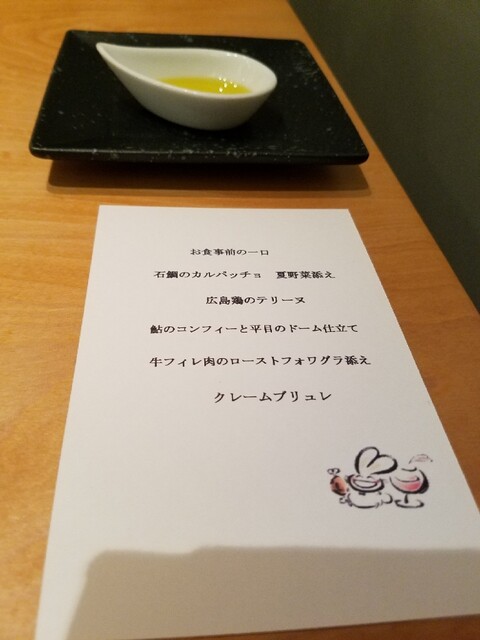 お食事前の一口
石鯛のカルパッチョ　夏野菜添え
広島鶏のテリーヌ
鮎のコンフィーと平目のドーム仕立て
牛フィレ肉のローストフォワグラ添え
クレームブリュレ